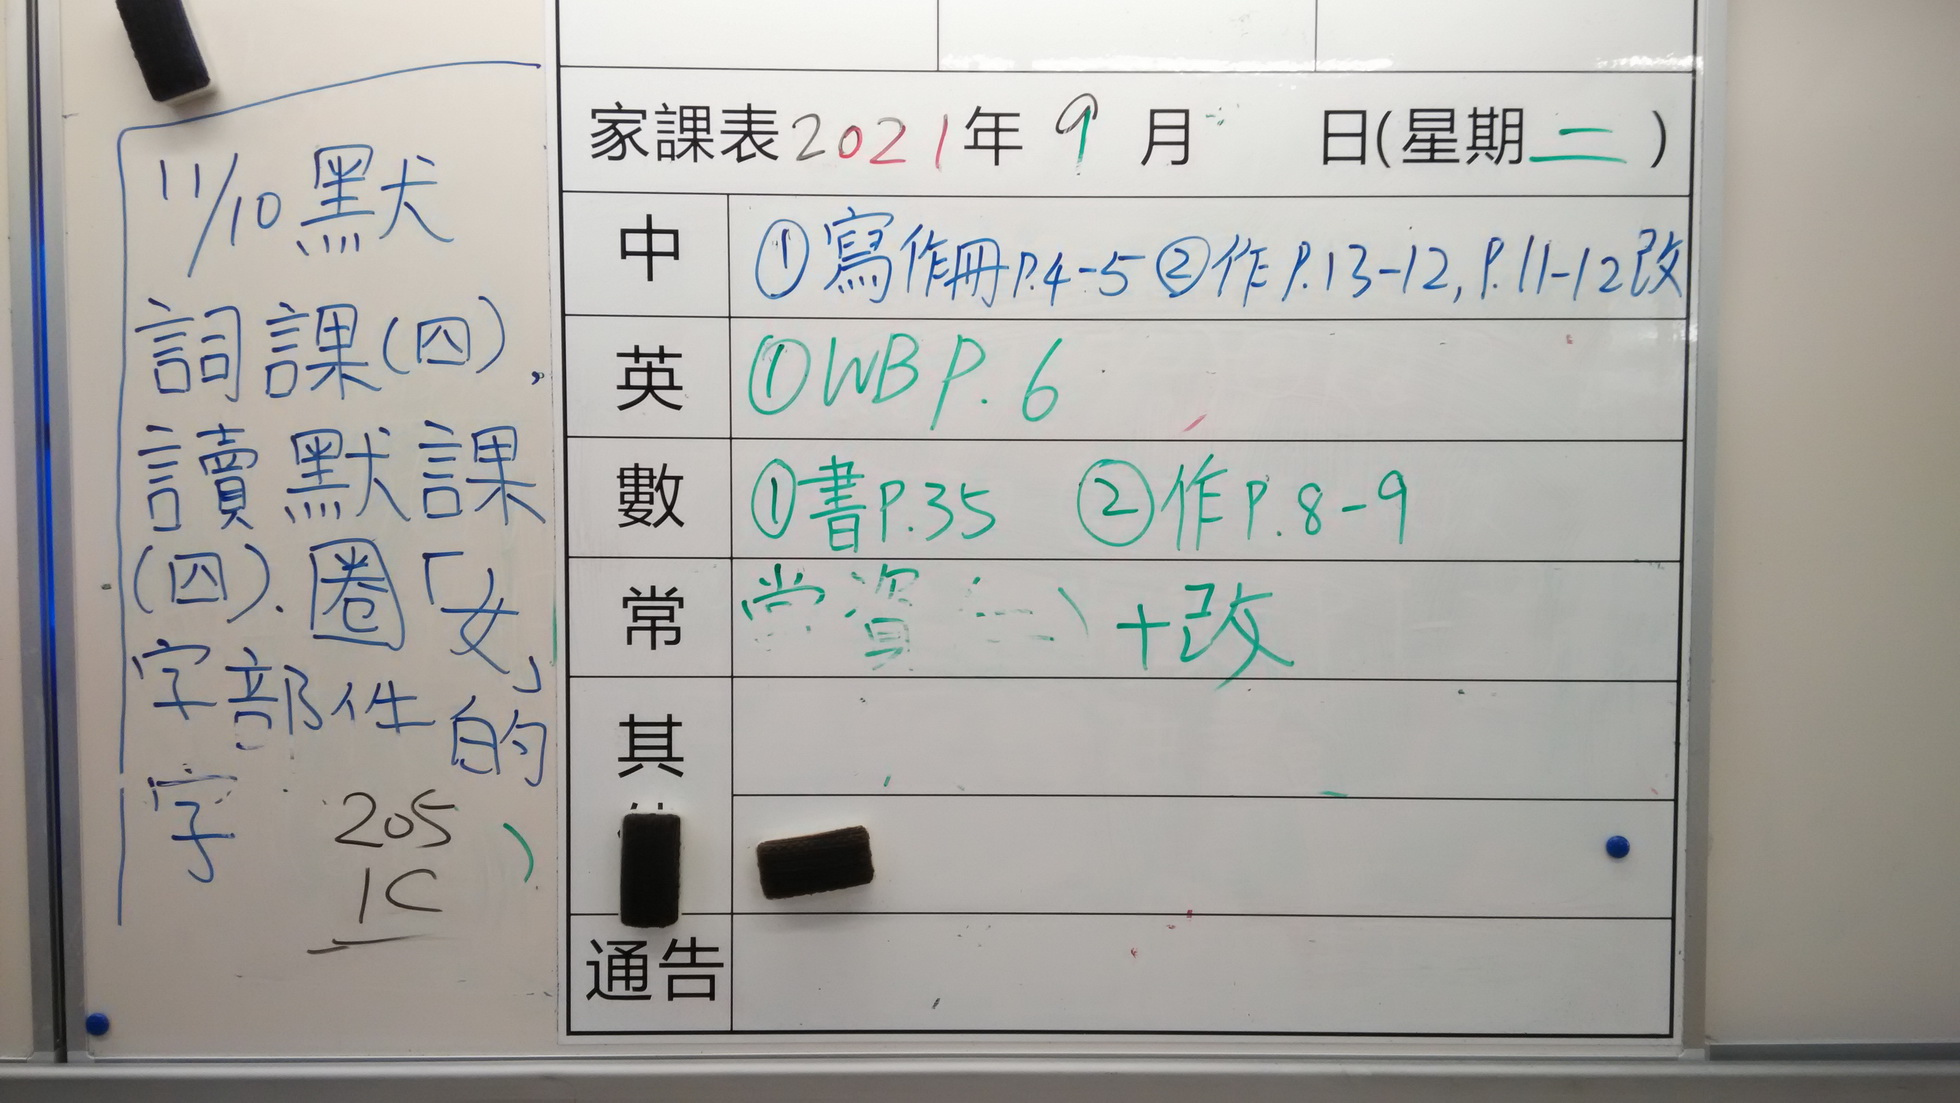 11/10 默
詞課(四),
讀默課
(四).圈「女」
字部件的
字
205
1C
家課表2021年9月 日(星期二)
中 ①寫作冊P.4-5 ②作P.13-12, P.11-12改
英 ①WB P.6
數 ①書P.35 ②作P.8-9
常 常資 +改
其
通告